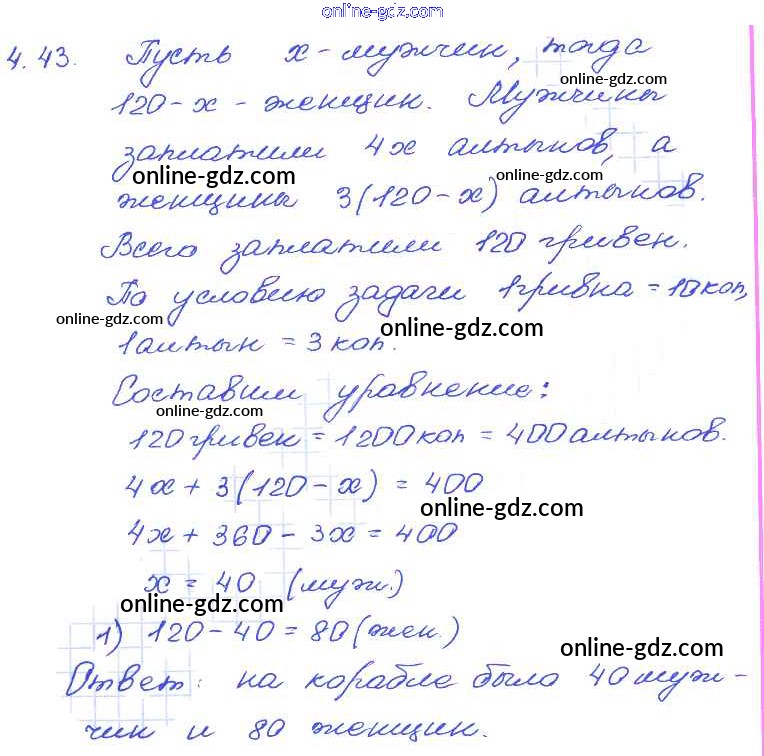 online-gdz.com
4.43. Пусть x-мужчин, тогда
online-gdz.com
120-x - женщин. Мужчины
заплатили 4x алтынов, а
online-gdz.com online-gdz.com
женщины 3(120-x) алтынов.
Всего заплатили 120 гривен.
По условию задачи 1гривна = 10коп,
online-gdz.com online-gdz.com
1алтын = 3 коп.
Составим уравнение:
online-gdz.com
120гривен = 1200коп = 400алтынов.
4x + 3(120-x) = 400
online-gdz.com
4x + 360 - 3x = 400
x = 40 (муж.)
online-gdz.com
1) 120-40=80(жен.)
online-gdz.com
Ответ: на корабле было 40 муж-
чин и 80 женщин.